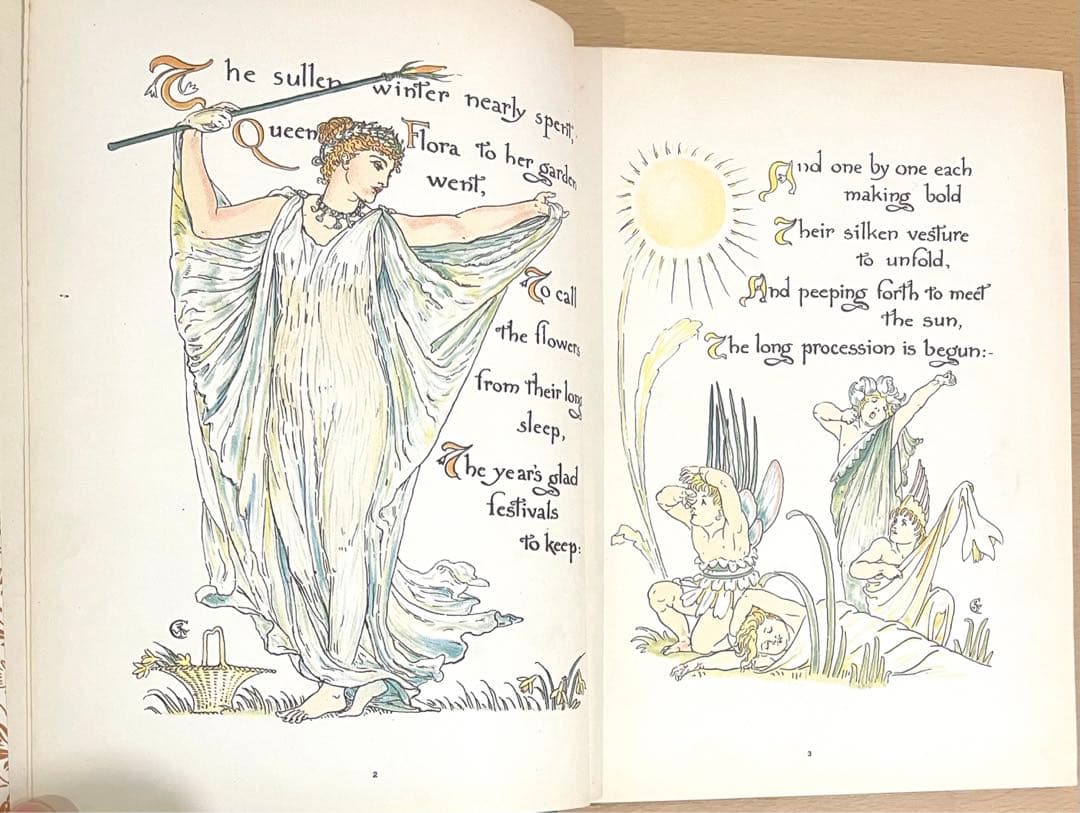 The sullen winter nearly spent,
Queen Flora to her garden
went,
To call
the flowers
from their long
sleep,
The year's glad
festivals
to keep:
2
And one by one each
making bold
Their silken vesture
to unfold,
And peeping forth to meet
the sun,
The long procession is begun:-
3